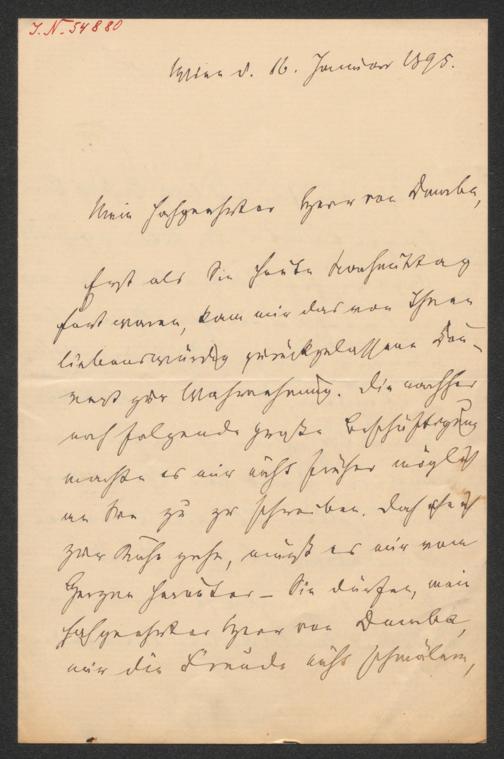 J. N. 54880
Wien d. 16. Januar 1895.
Mein hochgeehrter Herr von Dumba,
Erst als Sie heute Nachmittag
fort waren, kam mir das von Ihnen
liebenswürdig zurückgelassene Cou-
vert zur Wahrnehmung. Die nachher
noch folgende große Beschäftigung
machte es mir nicht früher möglich
an Sie zu schreiben. Doch ehe ich
zur Ruhe gehe, muß es mir vom
Herzen herunter – Sie dürfen, mein
hochgeehrter Herr von Dumba,
mir die Freude nicht schmälern,